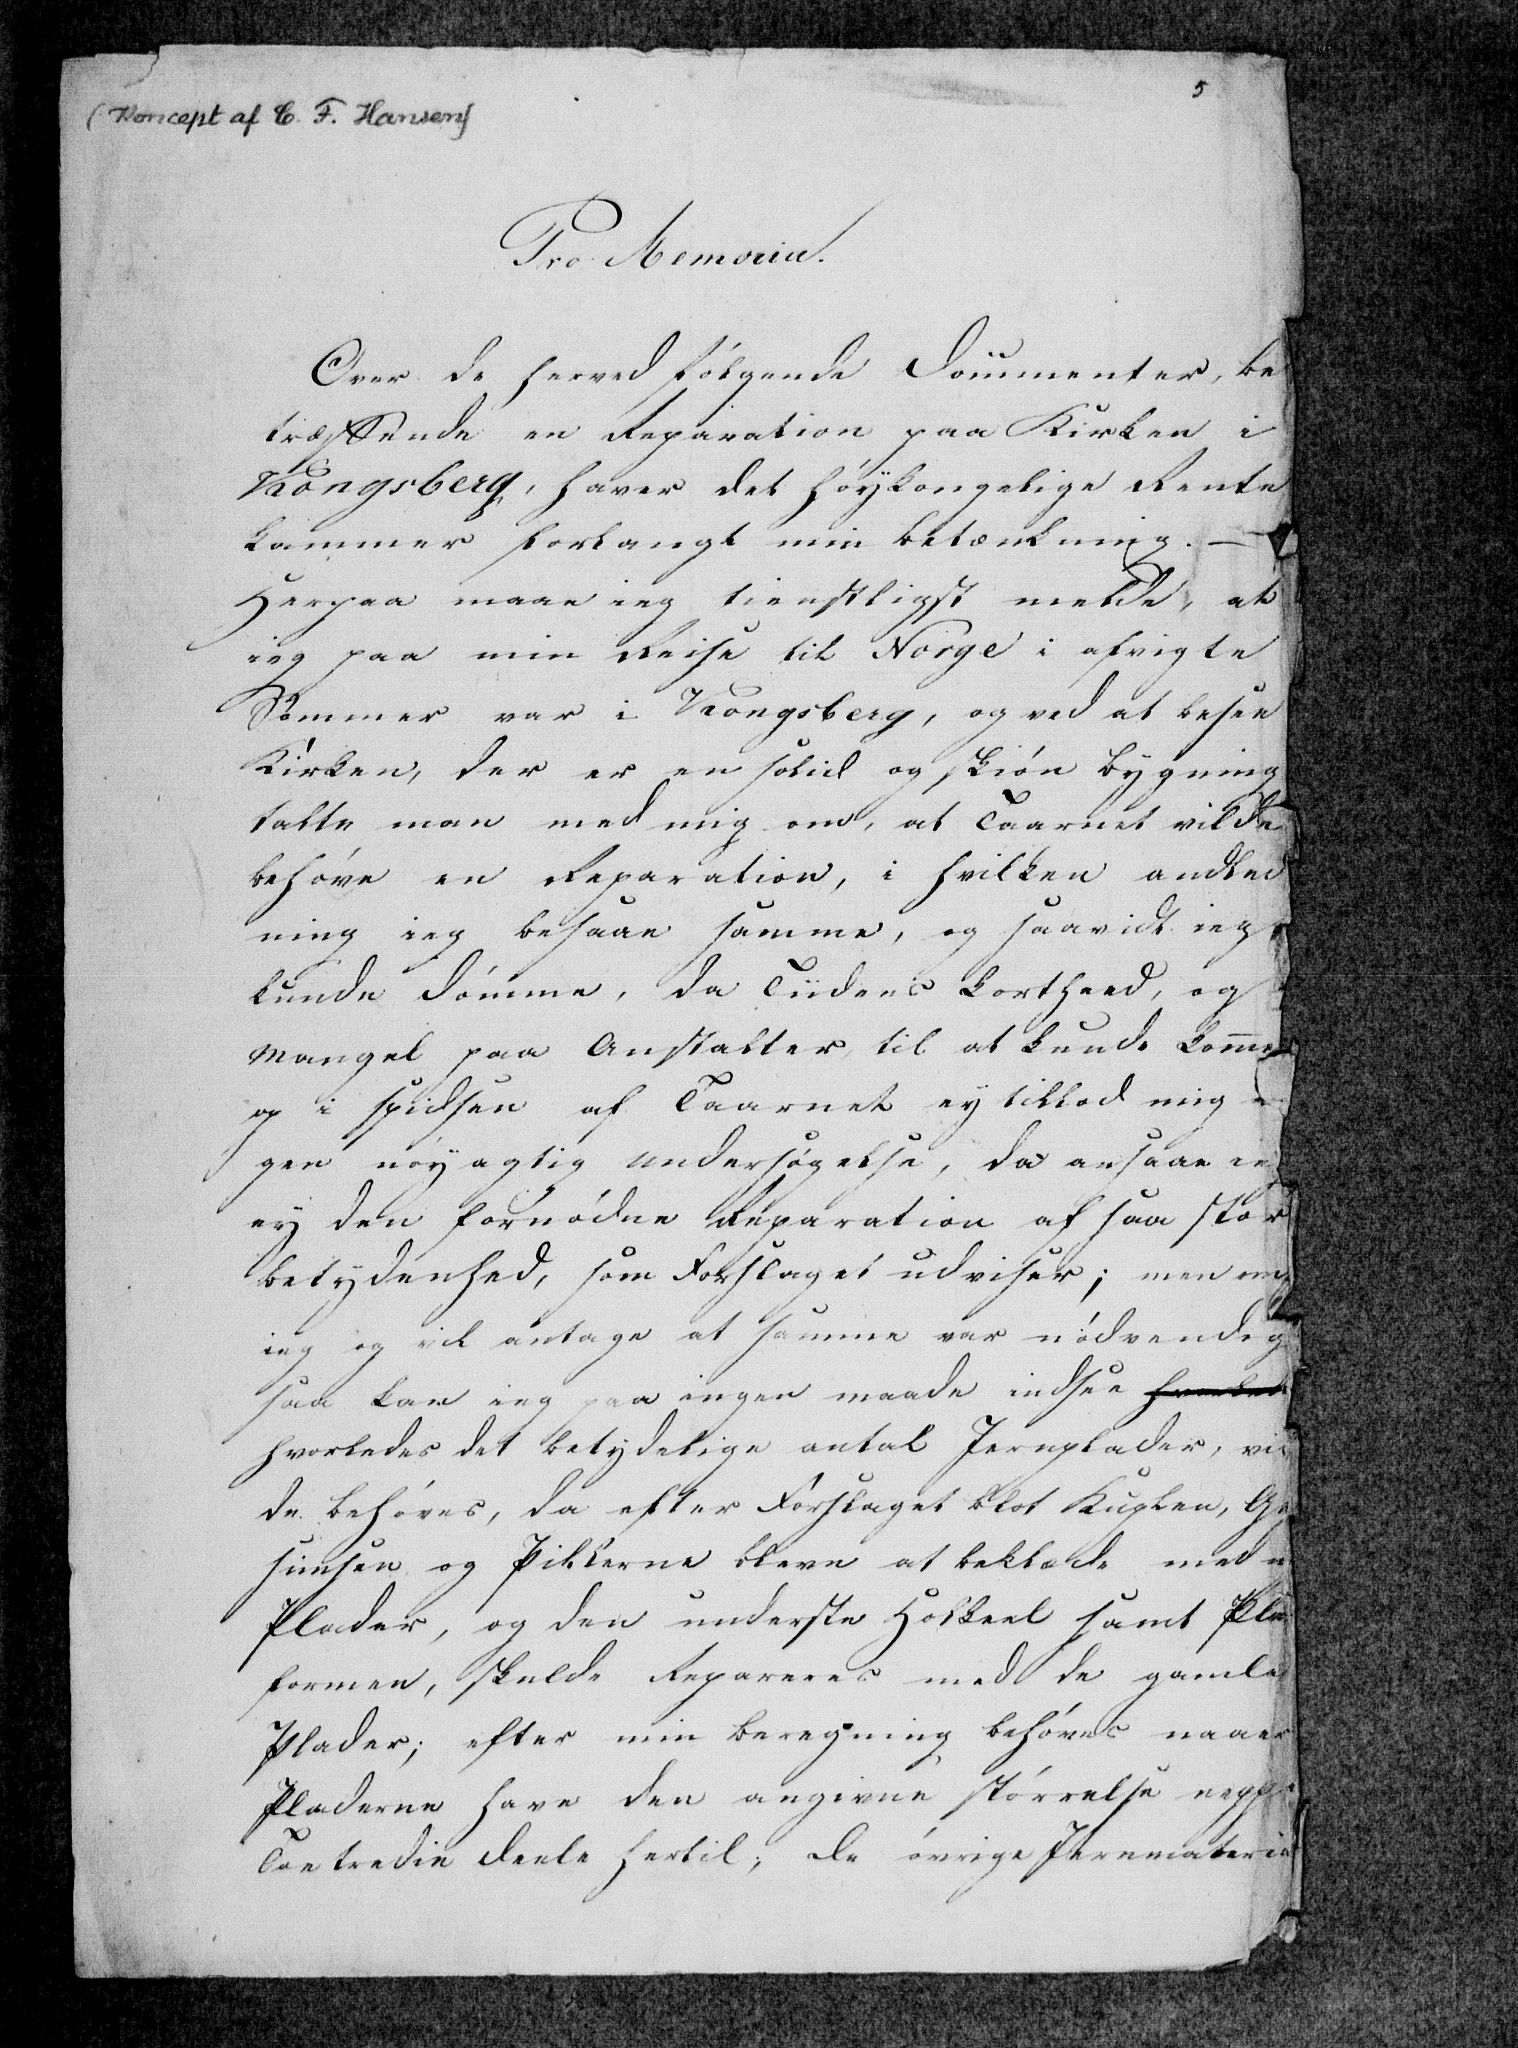 5
(Koncept af C. F. Hansen)
Pro Memoria.
Over de herved følgende Documenter, be
træffende en Reparation paa Kirken i
Kongsberg, haver det høÿkongelige Rente
kammer forlangt min betænkning. —
Herpaa maae ieg tienstligst melde, at
ieg paa min Reise til Norge i afvigte
Sommer var i Kongsberg, og ved at besee
Kirken, der er en solid og skiøn bygning
talte man med mig om, at Taarnet vilde
behøve en Reparation, i hvilken andled
ning ieg besaae samme, og saavidt ieg
kunde dømme, da Tiidens kortheed, og
Mangel paa Anstalter til at kunde komme
op i spidsen af Taarnet ey tillod mig
gen nøÿagtig undersøgelse, da ansaae ieg
ey den fornødne Reparation af saa stor
betydenhed, som Forslaget udviser; men om
ieg og vil antage at samme var nødvendig
saa kan ieg paa ingen maade indsee
hvorledes det betydelige antal Jernplader, vil
de behøves, da efter Forslaget blot Kuplen, Ge
simsen og Pillerne bleve at beklæde med
Plader, og den underste Holkeel samt Pla
formen, skulde Repareres med de gamle
Plader; efter min beregning behøves naaer
Pladerne have den angivne størrelse nepp
Toe tredie deele hertil; de øvrige Jernmateria